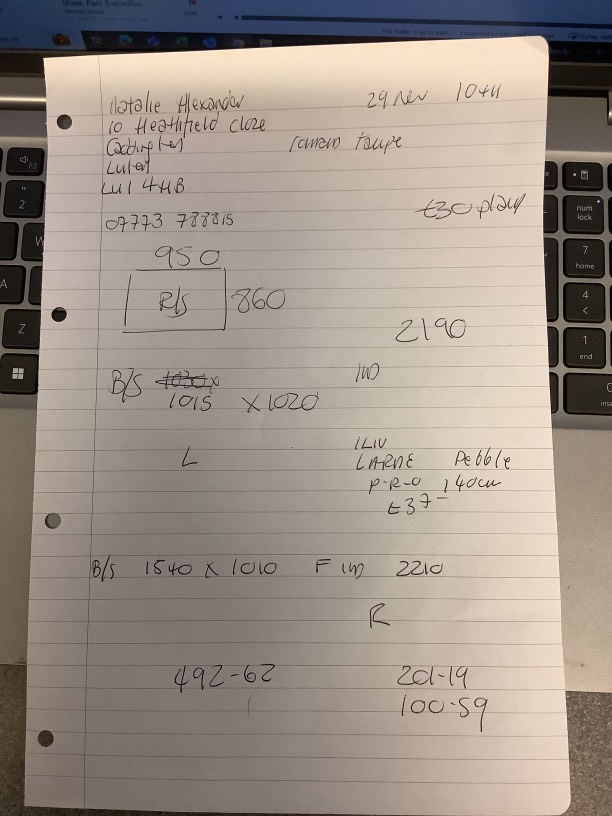 Natalie Alexander
29 Nov 1044
10 Heathfield Close
Caddington
taupe
Luton
LU1 4HB
07773 788815
£30
950
R/S 860
2190
B/S 1030 x
1015 X 1020
L
ILIV
LARNE Pebble
P-R-O 140cm
£37-
B/S 1540 X 1010 F 2210
R
492-62
201-19
100-59